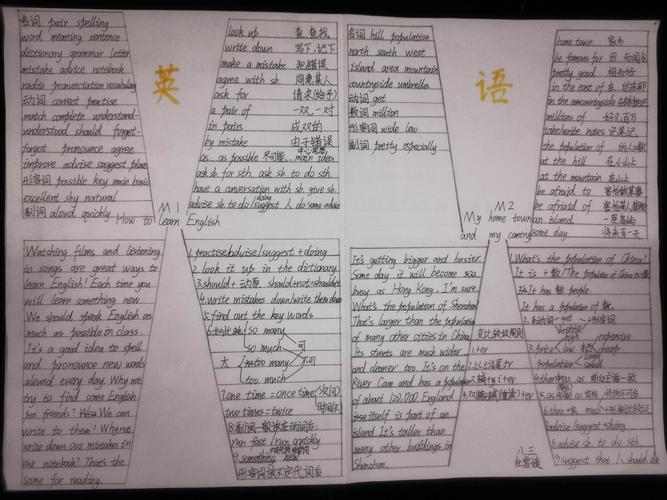 名词 pair spelling
word meaning sentence
dictionary grammar letter
mistake advice notebook
radio pronunciation vocabulary
动词 correct practise
match complete understand-
understood should forget-
forgot pronounce agree
improve advise suggest place
形容词 possible key main basic
excellent shy natural
副词 aloud quickly
英
look up 查,查找
write down 写下,记下
make a mistake 犯错误
agree with sb. 同意某人
ask for 请求(给予)
a pair of 一双,一对
in pairs 成双的
by mistake 由于错误
as...as possible main idea
ask sb. for sth. ask sb to do sth.
have a conversation with sb. give sb.
advise sb. to do / suggest 人 do some advise
M1
How to learn English
名词 hill population
north south west
island area mountain
countryside umbrella
动词 get
数词 million
形容词 wide low
副词 pretty especially
语
home town 家乡
be famous for 因而闻名
pretty good 相当好
in the east of
in the countryside
millions of 好几百万
take/write notes 记笔记
the population of
at the hill 在小山上
at the mountain 在山上
be afraid to 害怕做某事
be afraid of
an island
some day 将来有一天
M2
My home town
and my country
Watching films and listening
to songs are great ways to
learn English! Each time you
will learn something new.
We should speak English as
much as possible in class.
It's a good idea to spell
and pronounce new words
aloud every day. Why not
try to find some English
pen friends? We can
write to them! Why not
write down our mistakes in
our notebook? That's the
same for reading.
1.practise/advise/suggest+doing
2. look it up in the dictionary
3.should+动原 should+not=shouldn't
4.write mistakes down/write them down
5.find out the key words
so many
so much 可
大 too many 不可
too much
7.one time=once time(次)(可)
two times=twice 时间(不)
8.副词一般放在动词后
run fast / run quickly
9.something new
形容词放不定代词后
It's getting bigger and busier.
Some day it will become as
busy as Hong Kong, I'm sure.
What's the population of Shenzhen?
That's larger than the population
of many other cities in China.
Its streets are much wider
and cleaner too. It's on the
River Cam and has a population
of about 120,000. England
itself is part of an
island. It's taller than
many other buildings in
Shenzhen.
变比较级规则
1.+er
2.以e结尾+r
+er
1.What's the population of China?
It is + 数/The population of China is + 数
It has a population of 数.
high expensive
3.price low cheap
large
population small
advise/suggest+doing
8.advise sb. to do sth
9.suggest that 人 should do
八.三